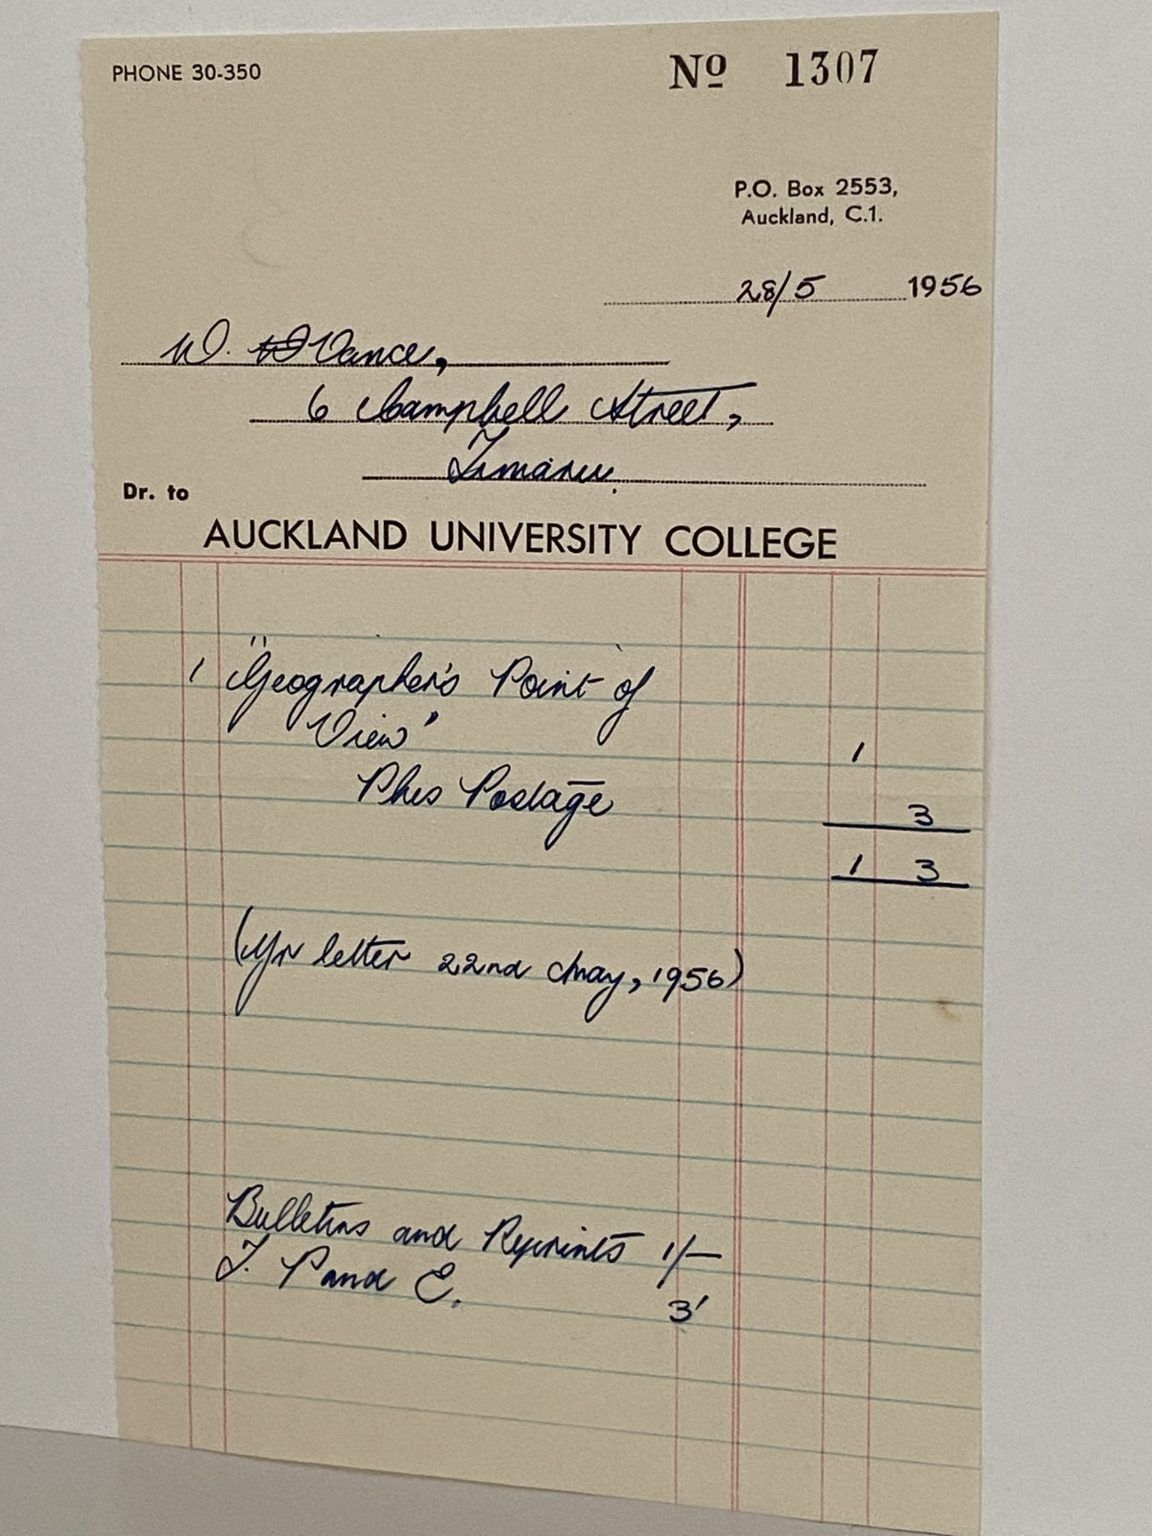 PHONE 30-350
Nº 1307
P.O. Box 2553,
Auckland, C.1.
28/5 1956
W. Vance,
6 Campbell Street,
Timaru.
Dr. to
AUCKLAND UNIVERSITY COLLEGE
1 "Geographer's Point of
View" 1
Plus Postage 3
1 3
(Yr letter 22nd May, 1956)
Bulletins and Reprints 1/-
T. P and E. 3'